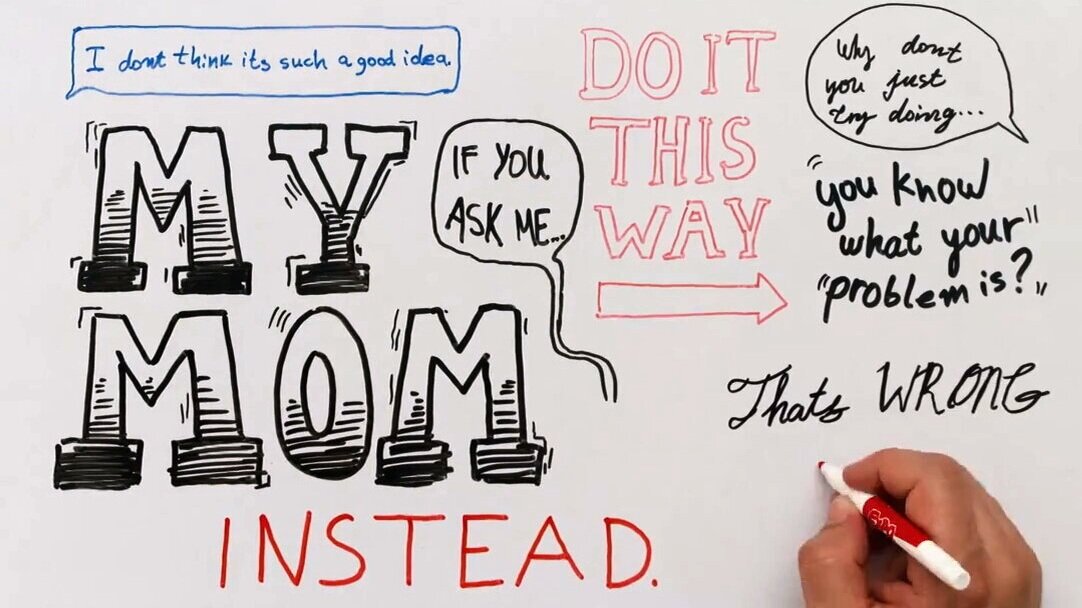 I dont think its such a good idea.
MY
MOM
INSTEAD.
IF YOU
ASK ME...
DO IT
THIS
WAY
Why dont
you just
try doing...
"you know
what your"
"problem is?"
Thats WRONG